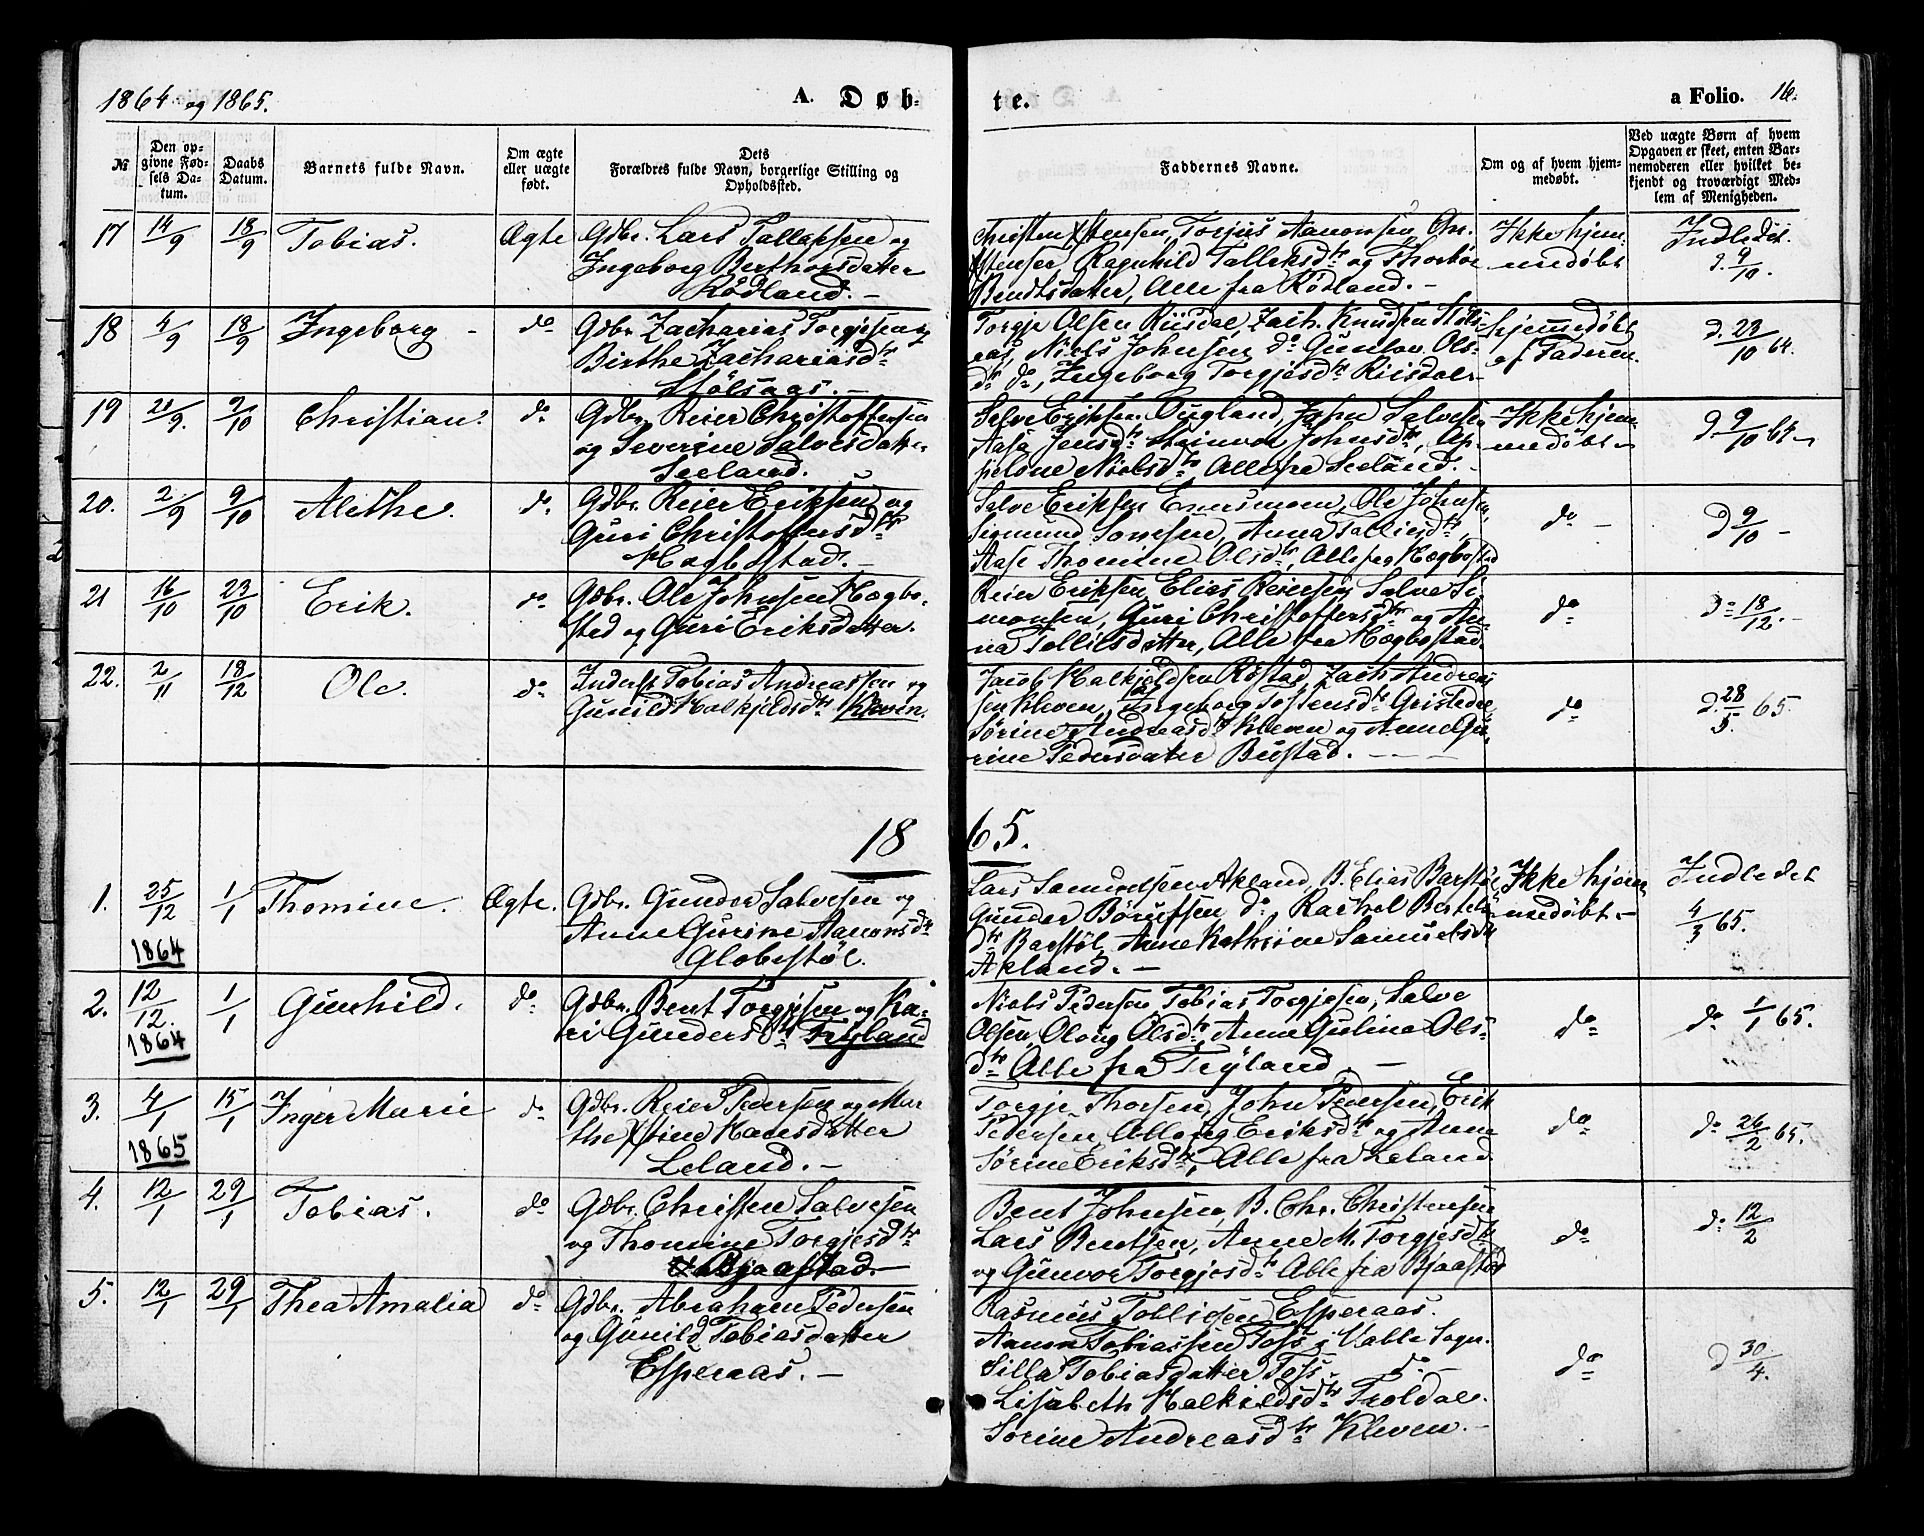 1864 og 1865.
A. Døb-
te.
a Folio. 16.
№
Den op-
givne Fød-
sels Da-
tum.
Daabs
Datum.
Barnets fulde Navn.
Om ægte
eller uægte
født.
Dets
Forældres fulde Navn, borgerlige Stilling og
Opholdssted.
Faddernes Navne.
Om og af hvem hjem-
medøbt.
Ved uægte Børn af hvem
Opgaven er skeet, enten Bar-
nemoderen eller hvilket be-
kjendt og troværdigt Med-
lem af Menigheden.
17 14/9 18/9 Tobias. Ægte Gdbr. Lars Tallaksen og
Ingeborg Berthorsdatter
Rødland. —
Christen Xstensen, Torjus Aanonsen, Chr.
Xstensen, Ragnhild Talleksdtr og Thorbor
Bendtsdatter, Alle fra Rødland. —
Ikke hjem-
medøbt
Indledet.
d. 9/10.
18 4/9 18/9 Ingeborg - do Gdbr. Zacharias Torgjesen og
Birthe Zachariasdtr
Stølsaas. —
Torgje Olsen Riisdal, Zach. Knudsen Støls-
aas, Niels Johnsen do Gunlov Ols-
dtr do, Ingeborg Torgjesdtr Riisdal -
hjemmedøbt
af Faderen.
d. 23/10 64.
19 21/9. 9/10 Christian. do Gdbr. Reier Christoffersen
og Severine Salvesdatter
Seeland.
Salve Eriksen Ougland, John Salvesen
Aasa Jensdtr Steinvor Johnsdtr, Ap-
pelone Nielsdtr Alle fra Seeland. -
Ikke hjem-
medøbt -
d 9/10 64 -
20. 2/9 9/10 Alethe. do Gdbr. Reier Eriksen og
Guri Christoffersdtr
Hægbostad. —
Salve Eriksen Ole Johnsen,
Sigmund Anna Tollisdtr,
Aase Thomine Olsdtr, Alle fra Hægbostad
do -
d 9/10 -
21 16/10 23/10 Erik. do Gdbr. Ole Johnsen Hægbo-
sted og Guri Eriksdatter.
Reier Eriksen, Elias Reiersen, Salve Si-
monsen, Guri Christoffersdtr og An-
na Tollilsdatter, Alle fra Hægbostad.
do
do 18/12. -
22. 2/11 18/12 Ole. do Inderst Tobias Andreassen og
Gunild Halkjeldsdtr Kleven.
Jacob Halkjeldsen Røstad, Zach. Andreas-
sen Kleven, Ingeborg Tostensdtr Gristede
Sørine Andreasdtr Kleven og Anne Gu-
rine Pedersdatter Bustad. - - -
do
d. 28/5 65.
18
65.
1. 25/12 1/1 Thomine. Ægte. Gdbr. Gunder Salvesen og
1864
Anne Gurine Aanonsdtr
Globestøl.
Lars Samuelsen Akland, B. Elias Barstøl
Gunder Børufsen do Rachel Bertels-
dtr Barstøl, Anne Kathrine Samuelsdtr
Akland. —
Ikke hjem-
medøbt -
Indledet
4/3 65.
2. 12/12. 1/1 Gunhild. do Gdbr. Bent Torgjesen og Ka-
1864
ri Gundersdtr Tryland
Niels Pedersen, Tobias Torgjesen, Salve
Olsen, Oloug Olsdtr, Anne Gulina Ols-
dtr Alle fra Tryland. —
do
do 1/1 65.
3. 4/1 15/1 Inger Marie do Gdbr. Reier Pedersen og Mar-
1865
the Xstine Hansdatter
Leland. —
Torgje Thorsen, John Pedersen, Erik
Pedersen, Alloug Eriksdtr og Anne
Sørine Eriksdtr, Alle fra Leland.
do
do 26/2 65.
4. 12/1 29/1 Tobias. do Gdbr. Christen Salvesen
og Thomine Torgjesdtr
Bjaastad. -
Bent Johnsen, B. Chr. Christensen
Lars Bentsen, Anne M. Torgjesdtr
og Gunvor Torgjesdtr Alle fra Bjaastad
do
do 12/2
5. 12/1 29/1 Thea Amalia do Gdbr. Abraham Pedersen
og Gunild Tobiasdatter
Esperaas. —
Rasmus Tollisen Esperaas.
Aanon Tobiassen Foss i Valle Sogn.
Silla Tobiasdatter Foss - do -
Lisabeth Halkildsdtr Troldal.
Sørine Andreasdtr Kleven. -
do
d 30/4.